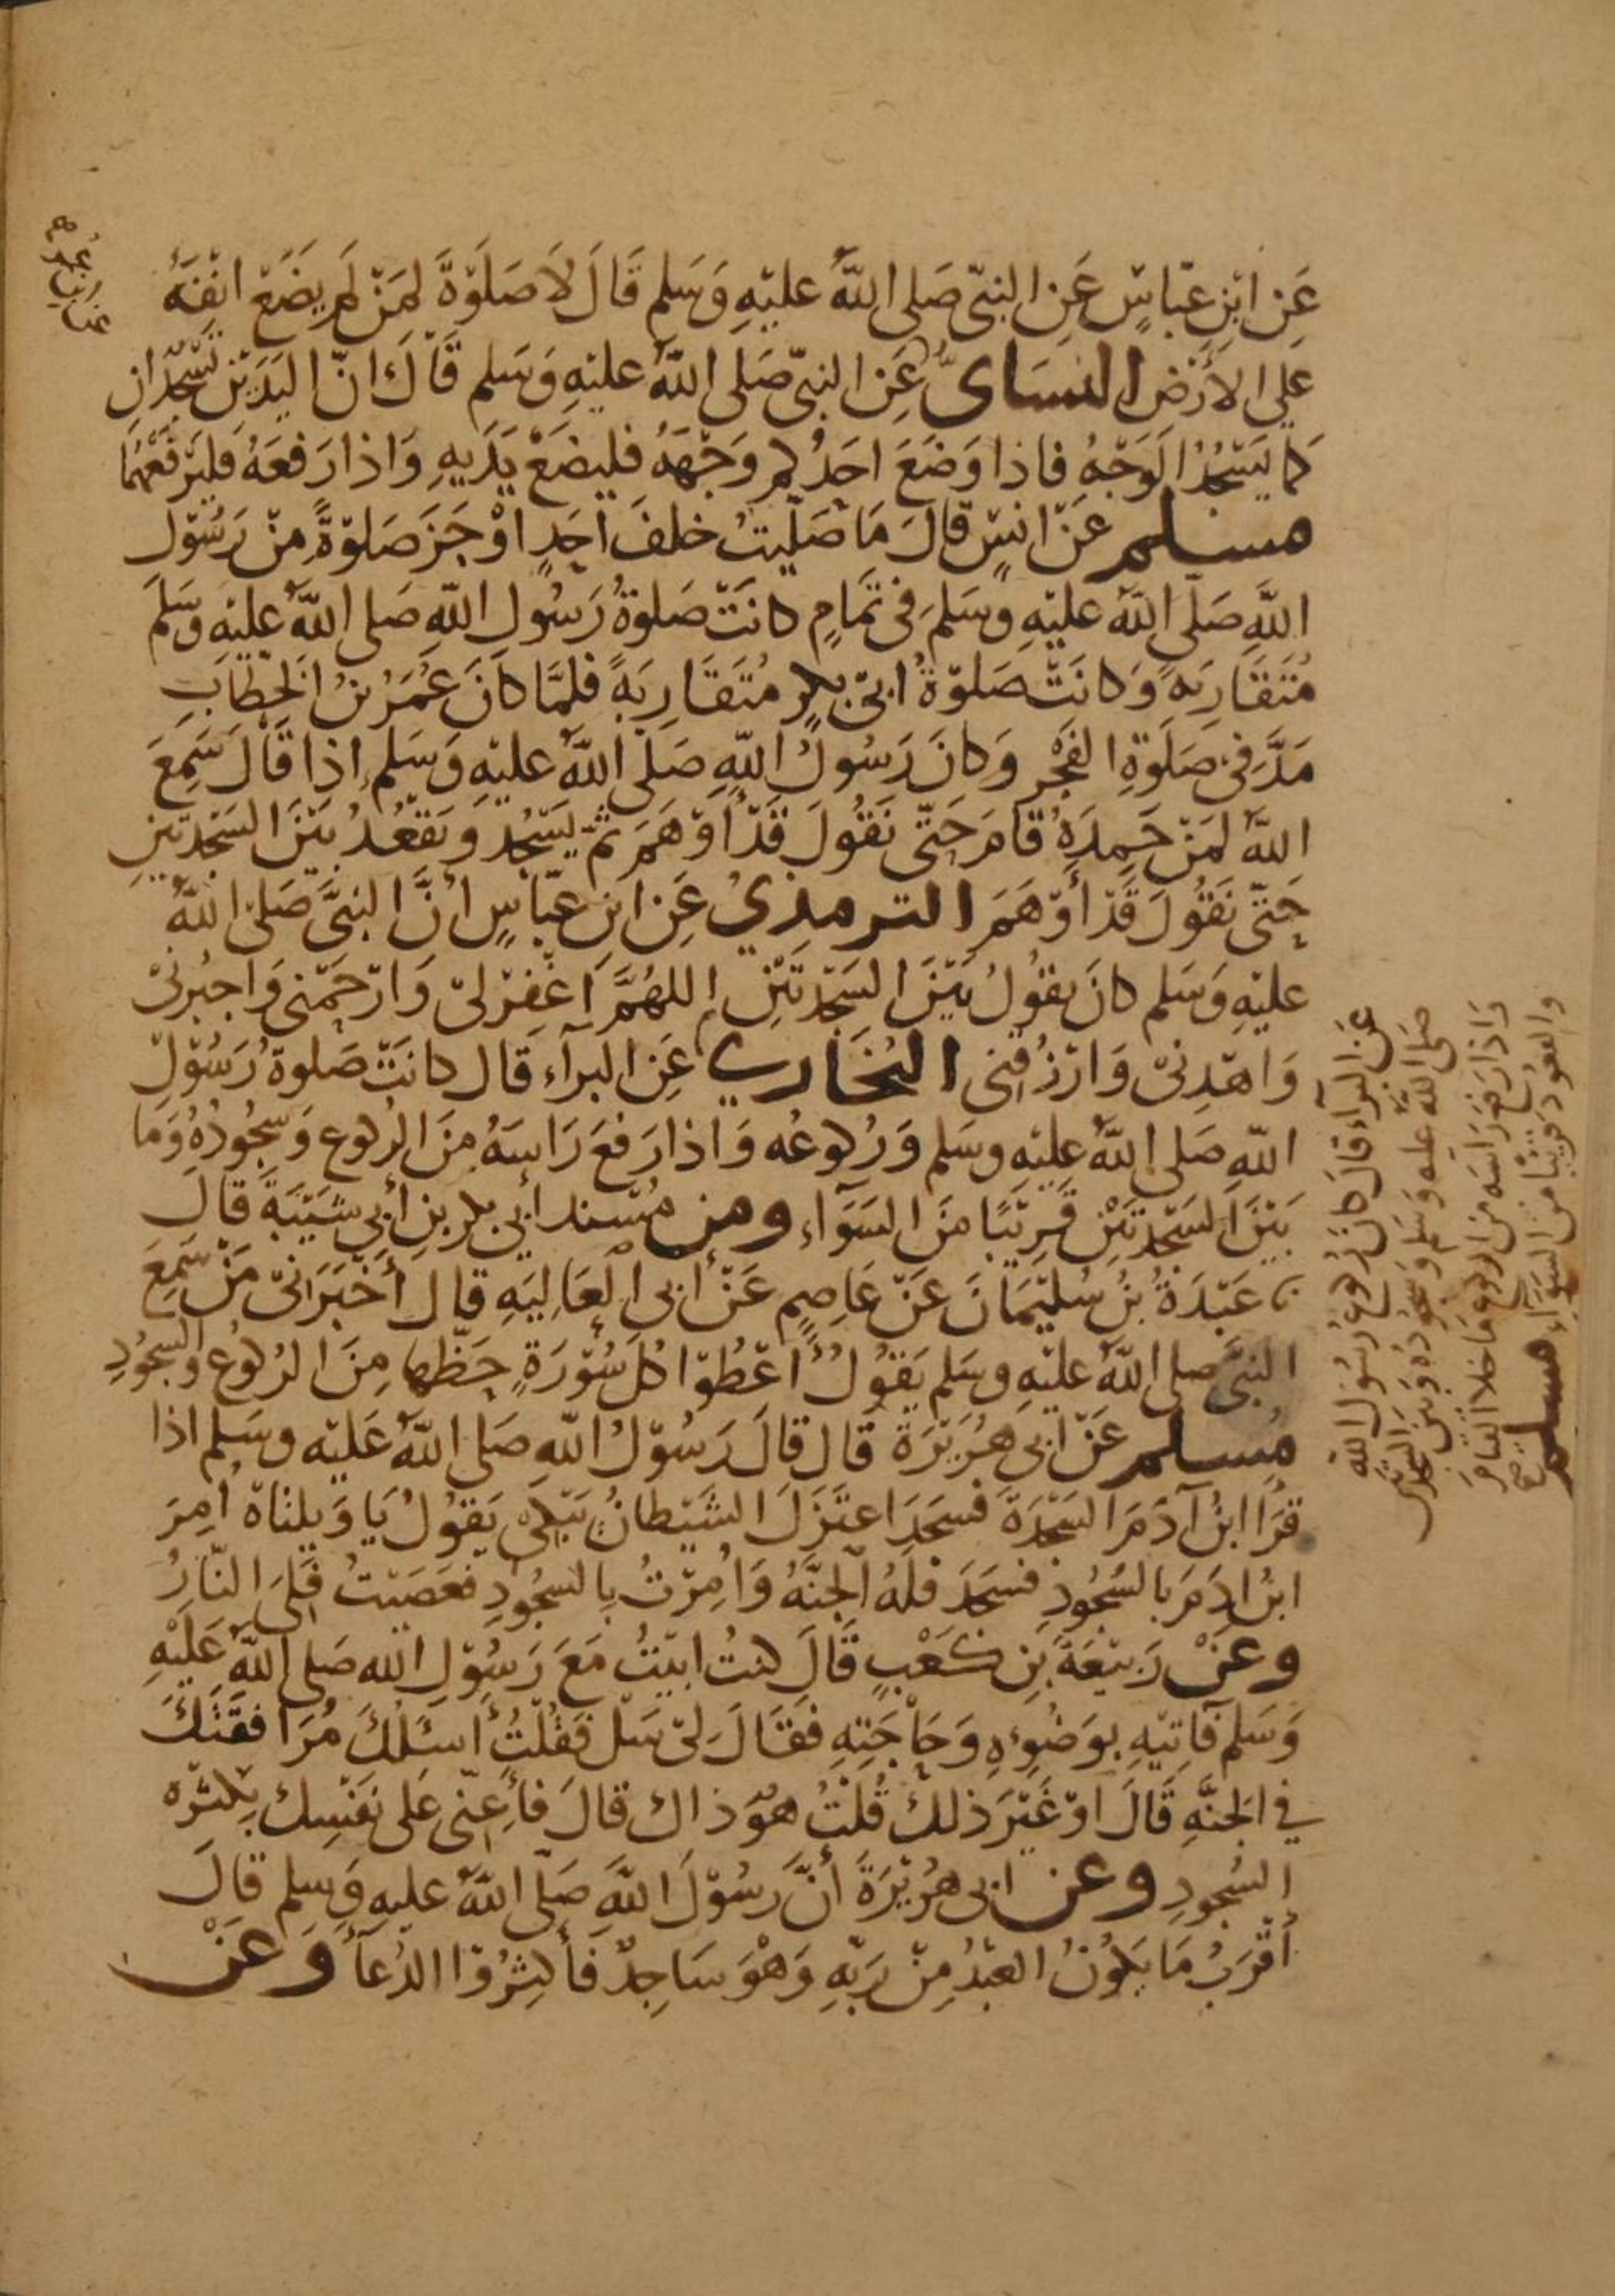 عَنِ ابْنِ عبّاسٍ عَنِ النبيّ صَلى اللهُ عليْهِ وَسَلم قَالَ لاَ صَلَوٰةَ لمَنْ لَم يضَعْ انْفَهُ
علي الأرْض النسَاىُّ عَنِ النبيّ صَلى اللهُ عليْهِ وَسَلم قَالَ انّ اليَدَيْنِ تَسْجُدَانِ
كما يَسْجُدُ الوَجْهُ فاذا وَضَعَ احَدُكم وَجْهَهُ فليضَعْ يَدَيهِ وَاذا رَفعَهُ فليَرْفَعْهُمَا
مسلم عَنْ انسٍ قالَ مَا صَلّيتُ خلفَ أحَدٍ اوْجَزَ صَلوٰةً مِنْ رَسُوْل
اللهِ صَلّى اللهُ عليْهِ وسَلمَ في تَمامٍ كانَتْ صَلوةُ رَسُولِ اللهِ صَلى اللهُ عليْهِ وسَلمَ
مُتَقَارِبَةً وَكانَتْ صَلوٰةُ ابي بكرٍ مُتَقَارِبَةً فلمَّا كانَ عُمَرُ بنُ الخطّابِ
مَدَّ في صَلَوٰةِ الفَجْرِ وَكانَ رَسُولُ اللهِ صَلى اللهُ عليْهِ وَسَلم اذا قَالَ سَمِعَ
اللهُ لمَنْ حَمِدَهُ قامَ حَتّى نَقُولَ قَدْ أوْهَمَ ثمّ يَسْجُد وَيَقْعُدُ بَيْنَ السَّجْدتَينِ
حَتّى نَقُولَ قَدْ أوْهَمَ الترمذيُ عَنِ ابنِ عبّاسٍ أنَّ النبيَّ صَلى اللهُ
عليْهِ وَسَلم كانَ يقُوْلُ بَيْنَ السَّجْدتَيْنِ اللهُمَّ اغْفِرْ لىْ وَارْحَمْنى وَاجبُرنىْ
وَاهْدِنىْ وَارْزُقنى البُخَاري عَنِ البَرآء قَال كانَتْ صَلوةُ رَسُوْل
اللهِ صَلى اللهُ عليْهِ وسَلم وَرُكوعُه وَاذا رَفعَ رَاسَهُ مِنَ الرُكوع وَسُجُودُهُ وَمَا
بَيْنَ السَّجْدتَيْنِ قَرِيْبًا مِنَ السَوَآء ومن مُسْند أبي بكر بنِ أبي شَيْبَةَ قالَ
نا عَبْدَةُ بْنُ سُليْمَانَ عَنْ عَاصِمٍ عَنْ أبى العَاليَهِ قال أَخْبَرَانىْ مَنْ سَمِعَ
النبيَّ صلى اللهُ عليْهِ وسَلم يَقُوْلُ اعْطُوْا كلَ سُوْرَةٍ حَظّها مِنَ الرُكوعِ والسجُودِ
مُسلم عَنْ ابى هُرَيْرَةَ قَال قالَ رَسُوْلُ اللهِ صَلى اللهُ عَليْهِ وسَلم اذا
قرَأ ابنُ آدَمَ السَّجْدَةَ فسَجَدَ اعتَزَلَ الشَيْطانُ يَبْكي يَقوُلُ يَا وَيلتاهْ أُمِرَ
ابنُ ادَمَ بالسُجُودِ فسَجَدَ فلَهُ الجنَّهُ وَأُمِرْتُ بِالسجُودِ فعَصَيْتُ فلِىَ النّارُ
وعَنْ رَبيْعَةَ بْنِ كَعْبٍ قَالَ كنتُ ابيْتُ مَعَ رَسُوْلِ الله صَلى اللهُ عَليْهِ
وَسَلم فآتيْهِ بوَضُوءِهِ وَحَاجَتِهِ فقَالَ لىْ سَلْ فَقُلْتُ أسئَلُكَ مُرَافقَتَكَ
في الجنَّهِ قَالَ اوْ غَيْرَ ذلكَ قُلْتُ هوَ ذاك قالَ فأعِنّى عَلى نفْسِك بِكثرْه
السُجودِ وعن ابى هُرَيْرَةَ أنَّ رسُوْلَ اللهِ صَلّى اللهُ عليهِ وَسلم قالَ
أقرَبُ مَا يَكوُنُ العَبْدُ مِنْ رَبّهِ وَهْوَ سَاجِدٌ فَأكثِرُوْا الدُعآءَ وَعَنْ
عَن البرآء قالَ كانَ رُكوعُ رَسُول الله
صَلى اللهُ عليه وَسَلم وَسجُودُهُ وَبَيْنَ السجْدتَيْنِ
وَاذا رَفعَ رَاسَه من الركوع مَا خلا القيَامَ
وَالقعُودَ قرِيبًا من السَوَآء مسلم